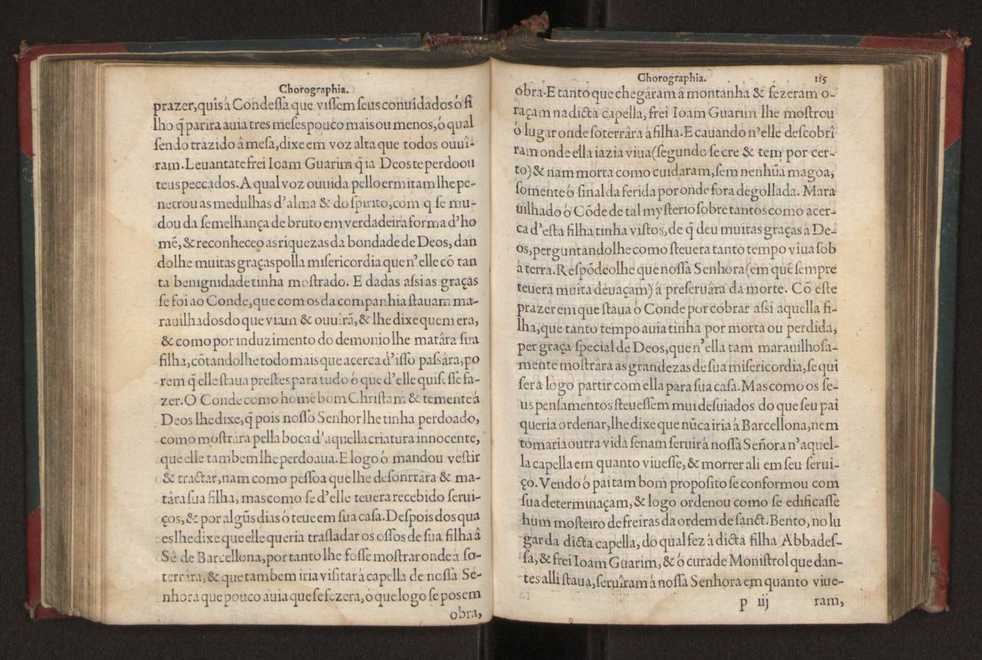 Chorographia.
prazer, quis à Condessa que vissem seus conuidados ó fi
lho q̃ parira auia tres meses pouco mais ou menos, ó qual
sendo trazido á mesa, dixe em voz alta que todos ouui-
ram. Leuantate frei Ioam Guarim q̃ ia Deos te perdoou
teus peccados. A qual voz ouuida pello ermitam lhe pe-
netrou as medulhas d'alma & do spirito, com q̃ se mu-
dou da semelhança de bruto em verdadeira forma d'ho
mẽ, & reconheceo as riquezas da bondade de Deos, dan
dolhe muitas graças polla misericordia que n'elle cõ tan
ta benignidade tinha mostrado. E dadas assi as graças
se foi ao Conde, que com os da companhia stauam ma-
rauilhados do que viam & ouuirã, & lhe dixe quem era,
& como por induzimento do demonio lhe matâra sua
filha, cõtandolhe todo mais que acerca d'isso passâra, po
rem q̃ elle staua prestes para tudo ó que d'elle quisesse fa-
zer. O Conde como home bom Christam & temente á
Deos lhe dixe, q̃ pois nosso Senhor lhe tinha perdoado,
como mostrâra pella boca d'aquella criatura innocente,
que elle tambem lhe perdoaua. E logo ó mandou vestir
& tractar, nam como pessoa que lhe desonrrâra & ma-
târa sua filha, mas como se d'elle teuera recebido serui-
ços, & por algũs dias ó teue em sua casa. Despois dos qua
es lhe dixe que elle queria trasladar os ossos de sua filha â
Sé de Barcellona, por tanto lhe fosse mostrar onde à so-
terrâra, & que tambem iria visitar à capella de nossa Se-
nhora que pouco auia que se fezera, ó que logo se posem
obra,
Chorographia. 115
obra. E tanto que chegâram â montanha & fezeram o-
raçam na dicta capella, frei Ioam Guarim lhe mostrou
ó lugar onde soterrâra à filha. E cauando n'elle descobri
ram onde ella iazia viua (segundo se cre & tem por cer-
to) & nam morta como cuidaram, sem nenhũa magoa,
somente ó sinal da ferida por onde fora degollada. Mara
uilhado ó Cõde de tal mysterio sobre tantos como acer-
ca d'esta filha tinha vistos, de q̃ deu muitas graças â De-
os, perguntandolhe como steuera tanto tempo viua sob
à terra. Respõdeolhe que nossa Senhora (em quẽ sempre
teuera muita deuaçam) à preseruâra da morte. Cõ este
prazer em que staua ó Conde por cobrar assi aquella fi-
lha, que tanto tempo auia tinha por morta ou perdida,
per graça special de Deos, que n'ella tam marauilhosa-
mente mostrâra as grandezas de sua misericordia, se qui
sera logo partir com ella para sua casa. Mas como os se-
us pensamentos steuessem mui desuiados do que seu pai
queria ordenar, lhe dixe que nũca iria â Barcellona, nem
tomaria outra vida senam seruir â nossa Señora n'aquel-
la capella em quanto viuesse, & morrer ali em seu serui-
ço. Vendo ó pai tam bom proposito se conformou com
sua determinaçam, & logo ordenou como se edificasse
hum mosteiro de freiras da ordem de sanct. Bento, no lu
gar da dicta capella, do qual fez à dicta filha Abbades-
sa, & frei Ioam Guarim, & ó cura de Monistrol que dan-
tes alli staua, seruîram â nossa Senhora em quanto viue-
p iij ram,